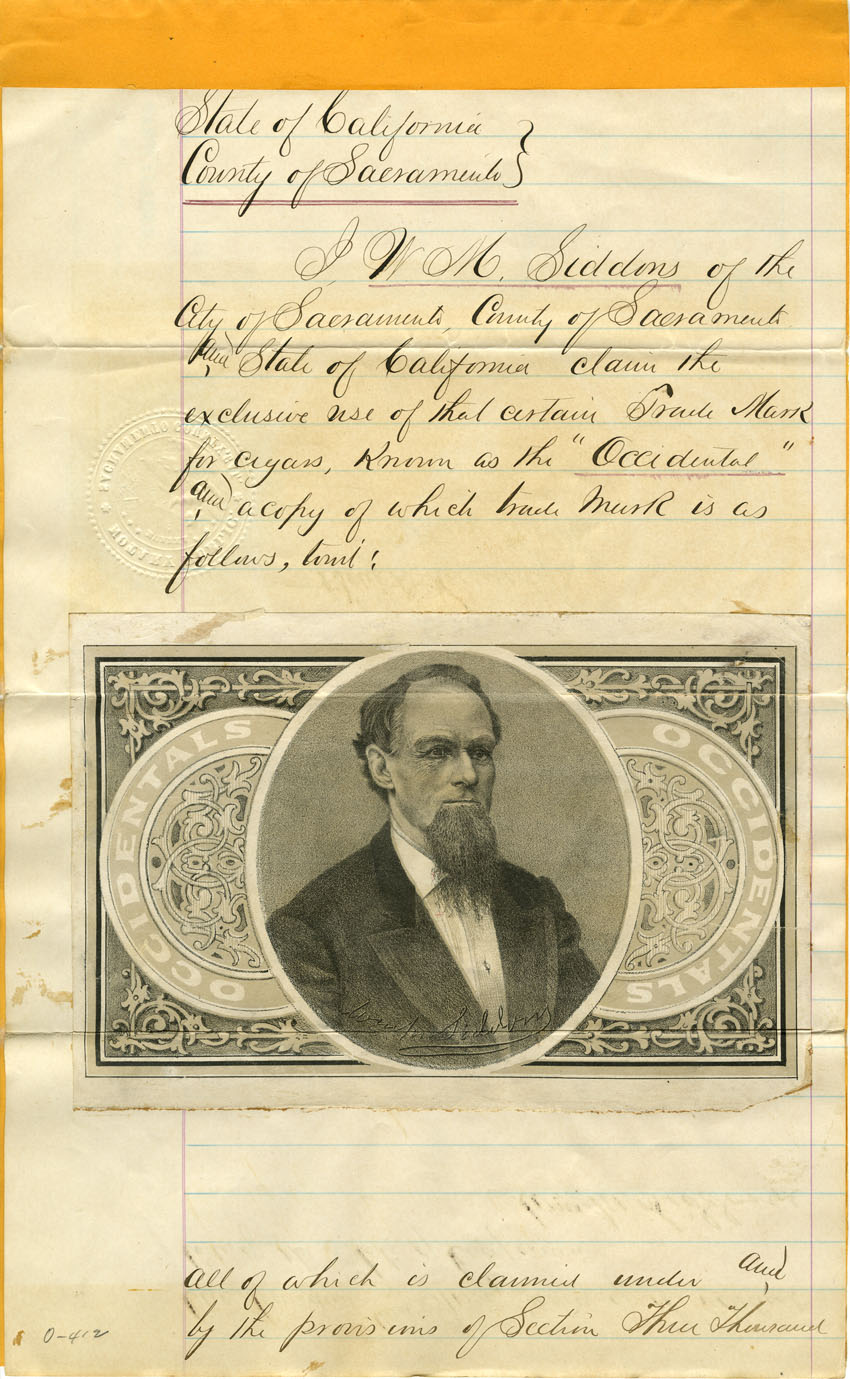 State of California }
County of Sacramento }
I W M. Siddons of the
City of Sacramento, County of Sacramento
and State of California claim the
exclusive use of that certain Trade Mark
for cigars, Known as the "Occidental"
and a copy of which trade Mark is as
follows, towit:
OCCIDENTALS
OCCIDENTALS
Siddons
all of which is claimed under and
by the provisions of Section Three Thousand
0-412